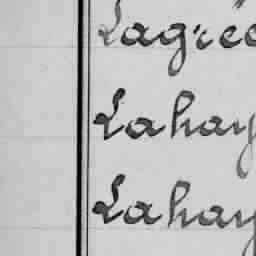 Lagrée
Lahay
Lahay